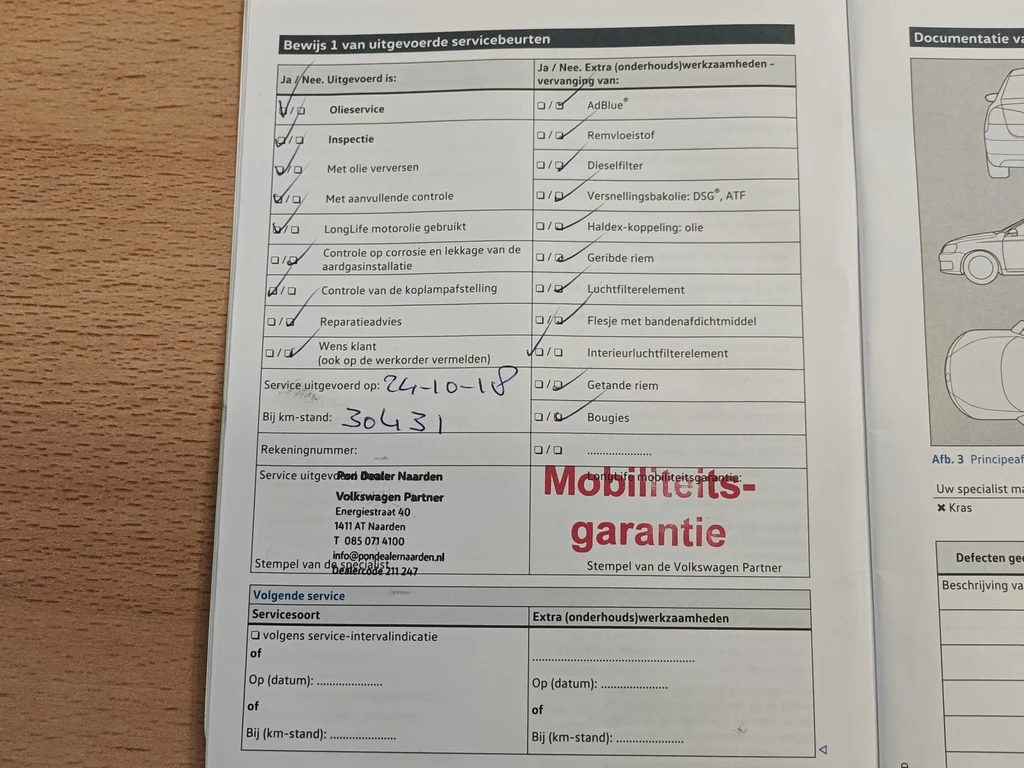 Bewijs 1 van uitgevoerde servicebeurten
Ja / Nee. Uitgevoerd is:
☑/☐ Olieservice
☑/☐ Inspectie
☑/☐ Met olie verversen
☑/☐ Met aanvullende controle
☑/☐ LongLife motorolie gebruikt
☐/☑ Controle op corrosie en lekkage van de
aardgasinstallatie
☑/☐ Controle van de koplampafstelling
☐/☑ Reparatieadvies
☐/☑ Wens klant
(ook op de werkorder vermelden)
Service uitgevoerd op: 24-10-18
Bij km-stand: 30431
Rekeningnummer:
Service uitgevoerd door:
Pon Dealer Naarden
Volkswagen Partner
Energiestraat 40
1411 AT Naarden
T 085 071 4100
info@pondealernaarden.nl
Dealercode 211 247
Stempel van de specialist
Ja / Nee. Extra (onderhouds)werkzaamheden -
vervanging van:
☐/☑ AdBlue®
☐/☑ Remvloeistof
☐/☑ Dieselfilter
☐/☑ Versnellingsbakolie: DSG®, ATF
☐/☑ Haldex-koppeling: olie
☐/☑ Geribde riem
☐/☑ Luchtfilterelement
☐/☑ Flesje met bandenafdichtmiddel
☑/☐ Interieurluchtfilterelement
☐/☑ Getande riem
☐/☑ Bougies
☐/☐ ......................
LongLife mobiliteitsgarantie:
Mobiliteits-
garantie
Stempel van de Volkswagen Partner
Volgende service
Servicesoort
☐ volgens service-intervalindicatie
of
Op (datum): ......................
of
Bij (km-stand): ......................
Extra (onderhouds)werkzaamheden
......................................................
Op (datum): ......................
of
Bij (km-stand): ......................
Documentatie va
Afb. 3 Principeaf
Uw specialist ma
✖ Kras
Defecten gee
Beschrijving va